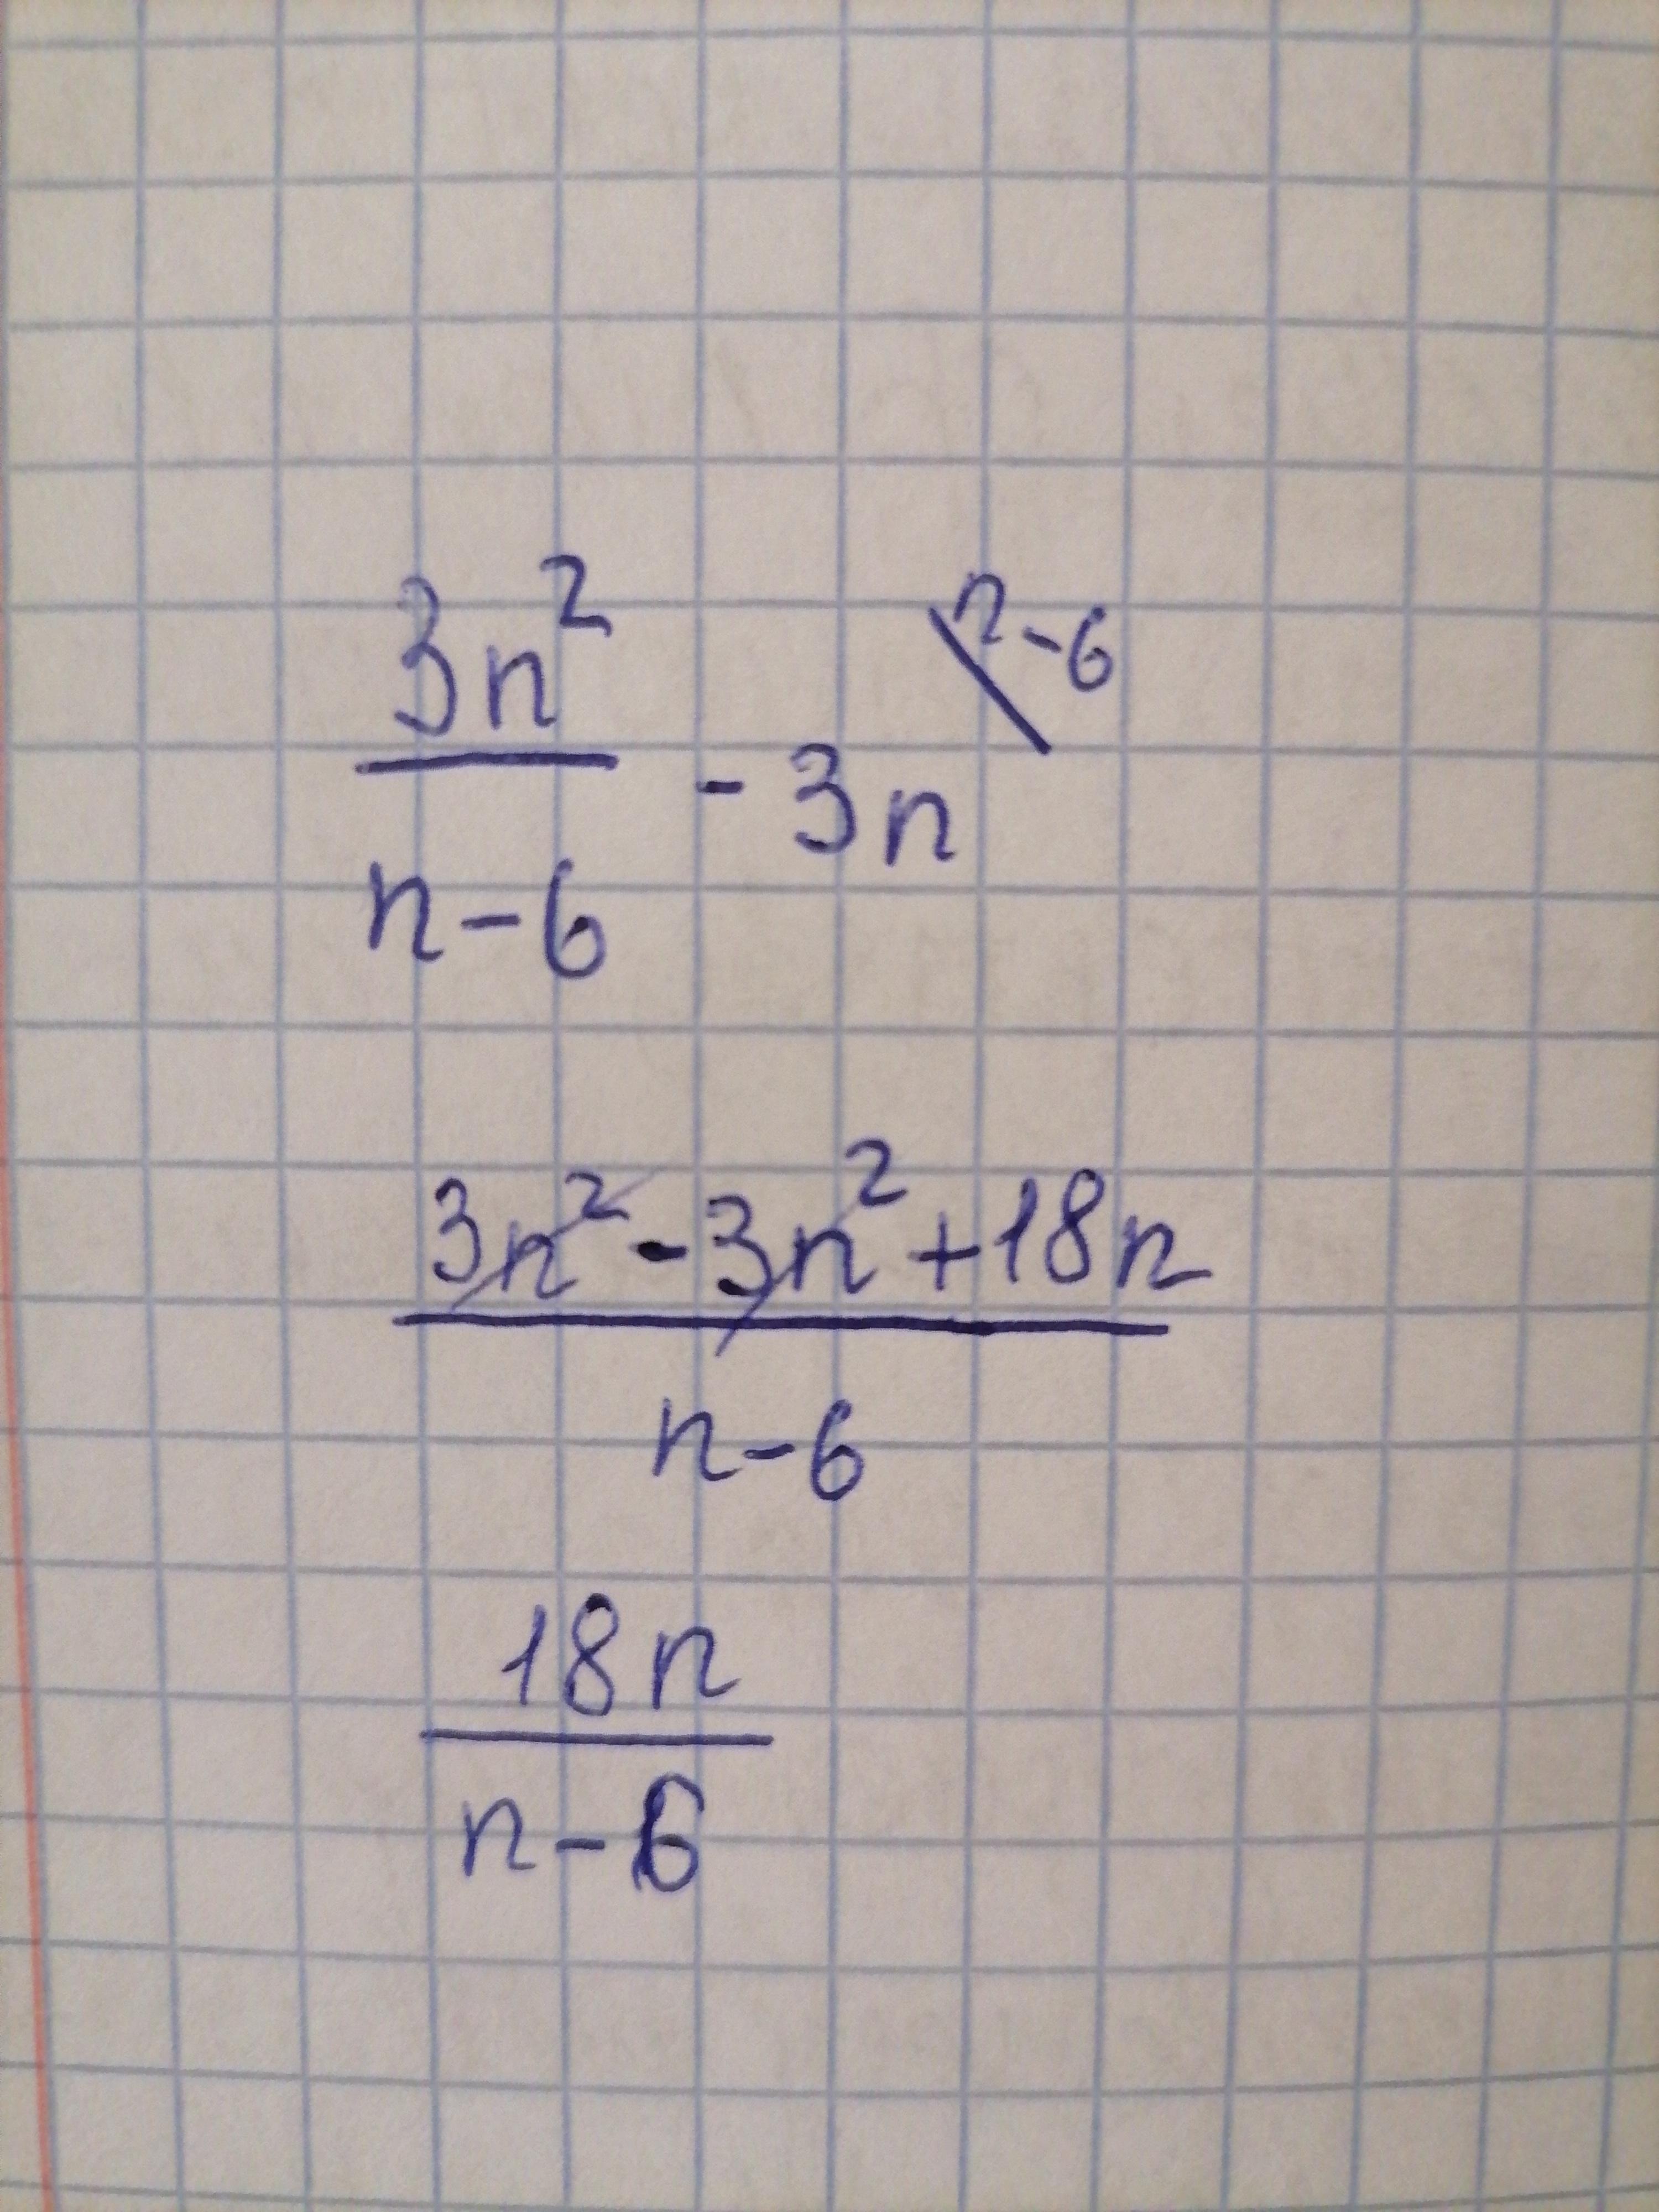 3n² / n-6 - 3n \ n-6
3n² - 3n² + 18n / n-6
18n / n-6